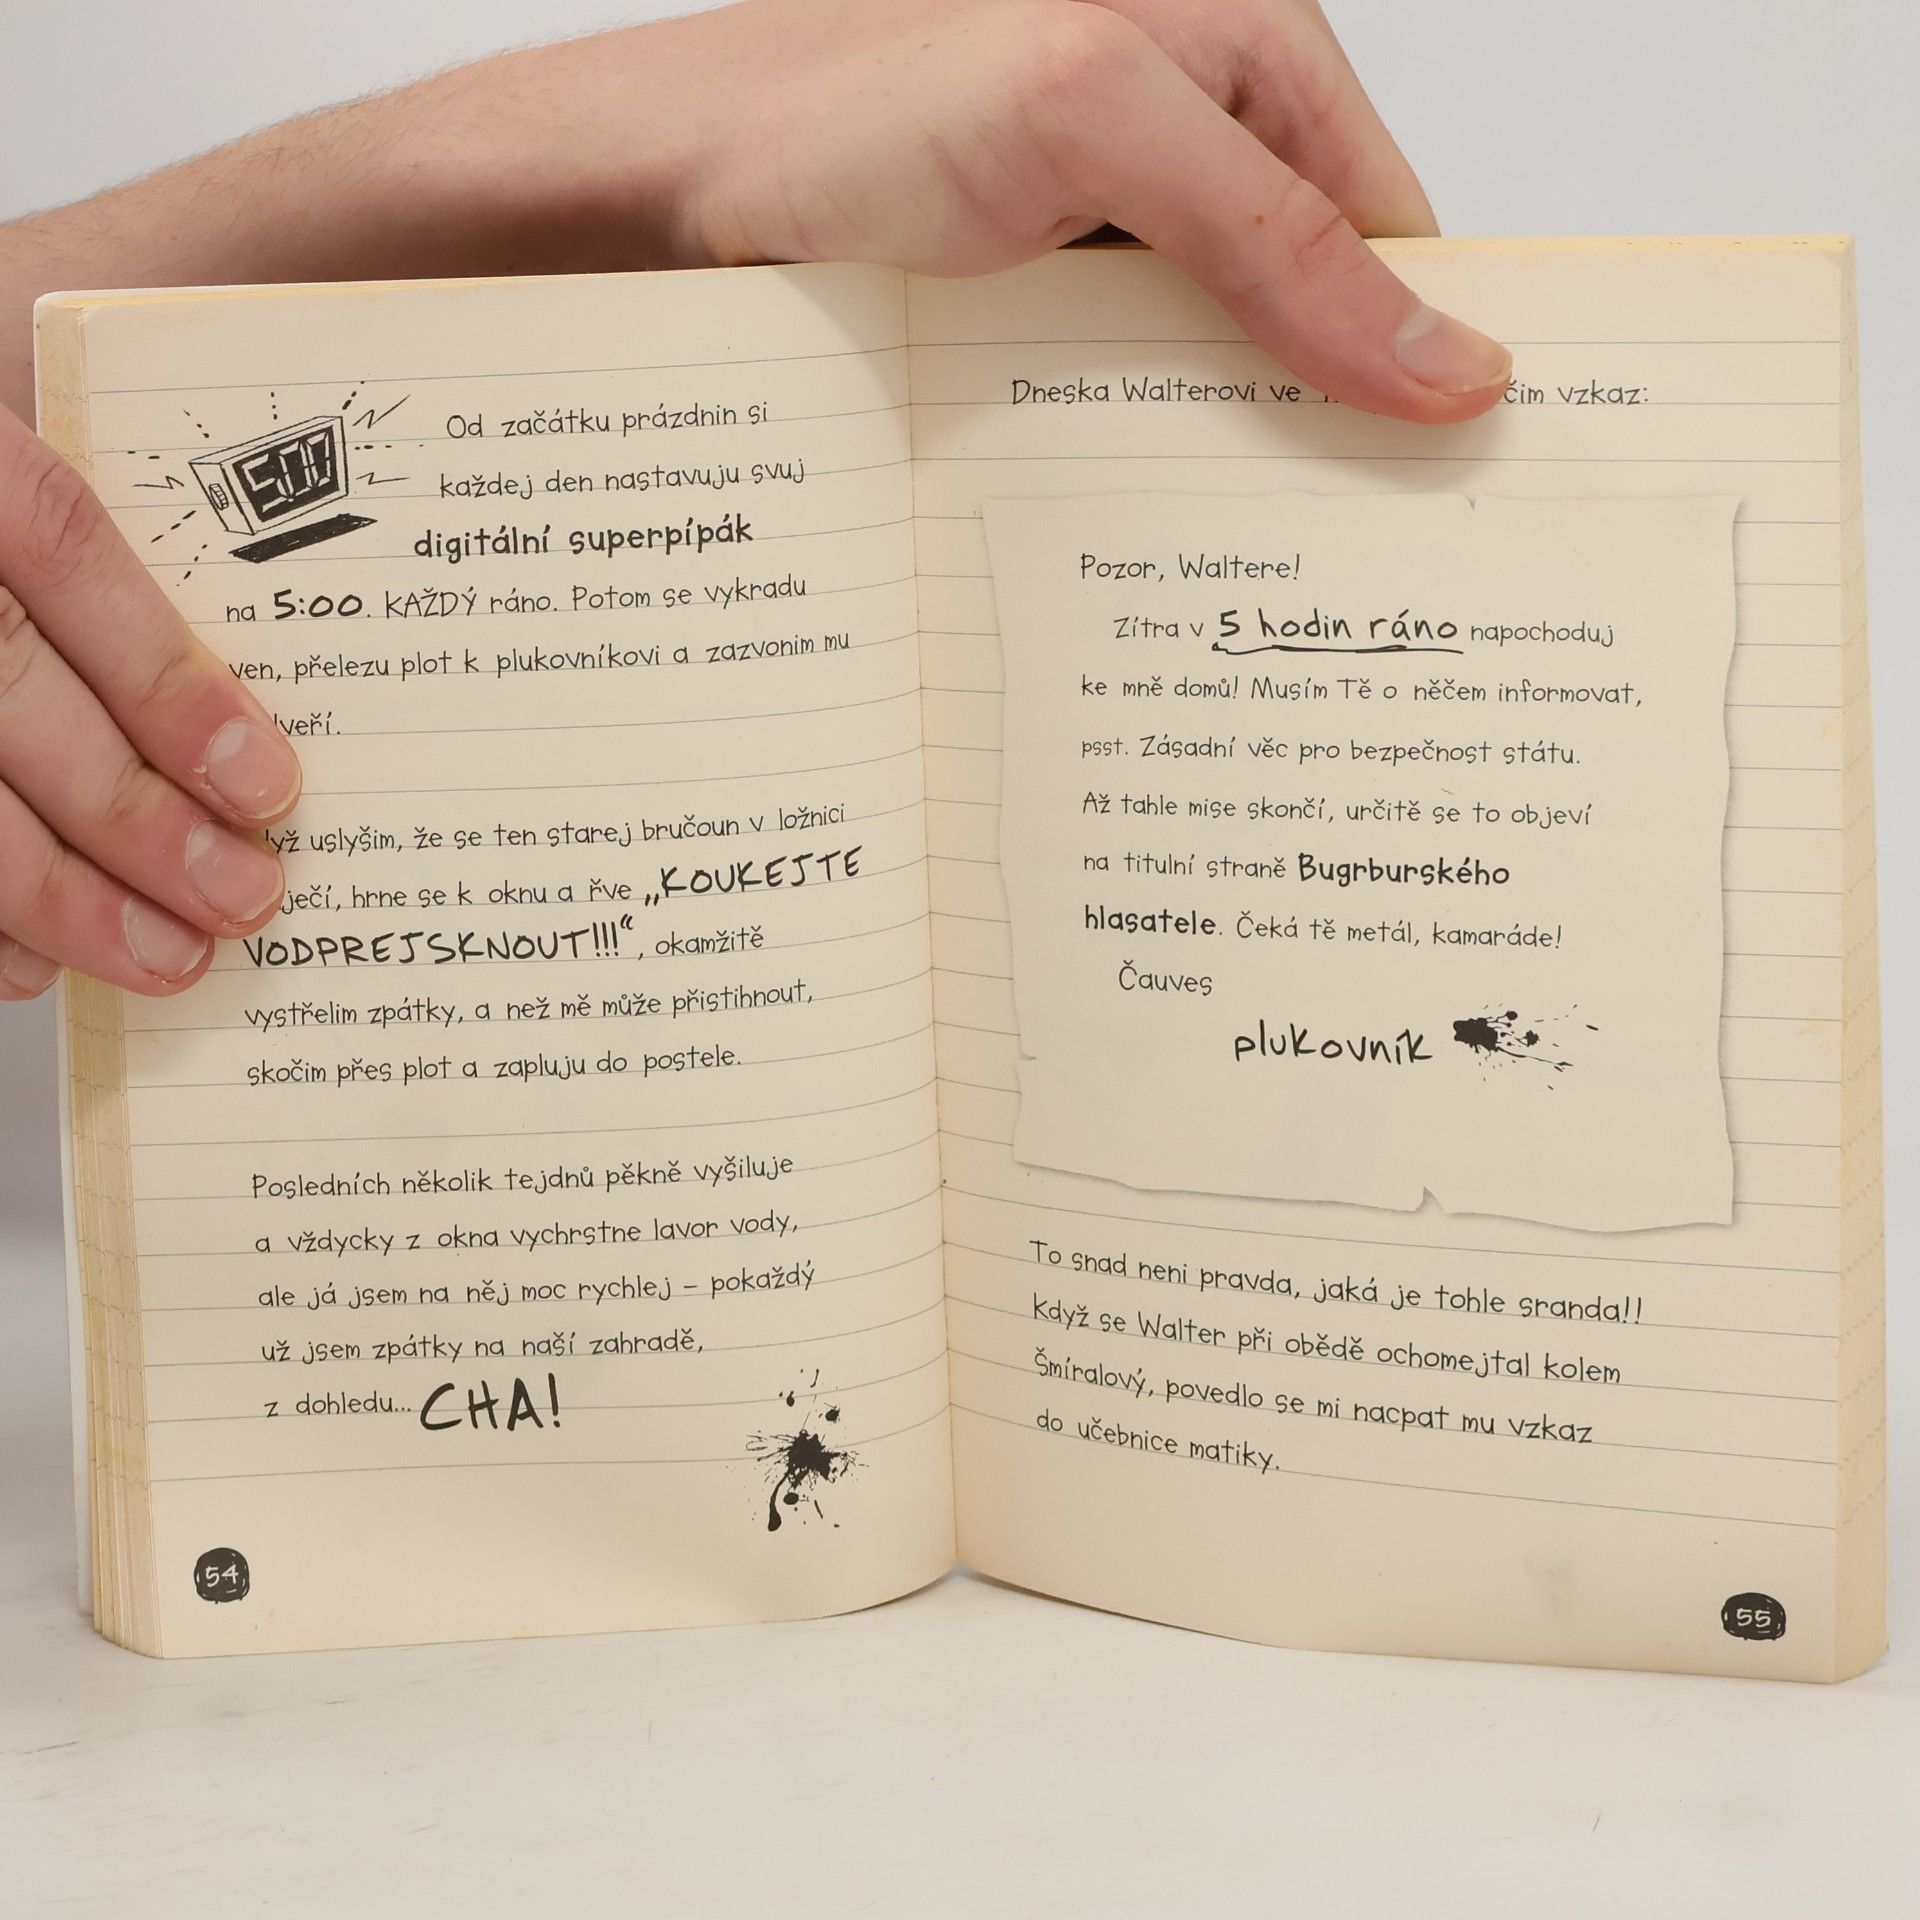 500
Od začátku prázdnin si
každej den nastavuju svuj
digitální superpípák
na 5:00. KAŽDÝ ráno. Potom se vykradu
ven, přelezu plot k plukovníkovi a zazvonim mu
.
uslyšim, že se ten starej bručoun v ložnici
hrne se k oknu a řve „KOUKEJTE
VODPREJSKNOUT!!!“, okamžitě
vystřelim zpátky, a než mě může přistihnout,
skočim přes plot a zapluju do postele.
Posledních několik tejdnů pěkně vyšiluje
a vždycky z okna vychrstne lavor vody,
ale já jsem na něj moc rychlej – pokaždý
už jsem zpátky na naší zahradě,
z dohledu... CHA!
54
Dneska Walterovi ve vzkaz:
Pozor, Waltere!
Zítra v 5 hodin ráno napochoduj
ke mně domů! Musím Tě o něčem informovat,
psst. Zásadní věc pro bezpečnost státu.
Až tahle mise skončí, určitě se to objeví
na titulní straně Bugrburského
hlasatele. Čeká tě metál, kamaráde!
Čauves
plukovník
To snad neni pravda, jaká je tohle sranda!!
Když se Walter při obědě ochomejtal kolem
Šmíralový, povedlo se mi nacpat mu vzkaz
do učebnice matiky.
55